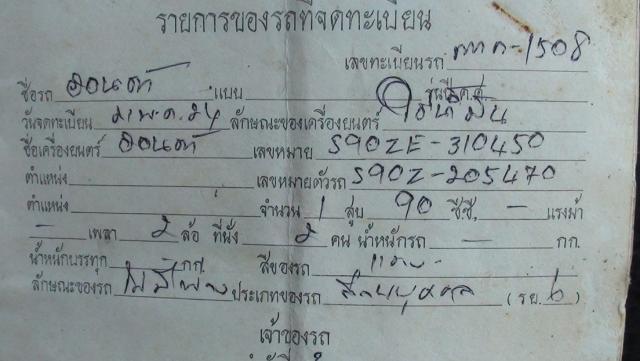 รายการของรถที่จดทะเบียน
เลขทะเบียนรถ -1508
ชื่อรถ ฮอนด้า แบบ รุ่นปี ค.ศ.
วันจดทะเบียน ลักษณะของเครื่องยนตร์
ชื่อเครื่องยนตร์ ฮอนด้า เลขหมาย S90ZE-310450
ตำแหน่ง เลขหมายตัวรถ S90Z-205470
ตำแหน่ง จำนวน 1 สูบ 90 ซี.ซี. — แรงม้า
— เพลา 2 ล้อ ที่นั่ง 2 คน น้ำหนักรถ — กก.
น้ำหนักบรรทุก กก. สีของรถ แดง
ลักษณะของรถ ประเภทของรถ ส่วนบุคคล (รย. )
เจ้าของรถ